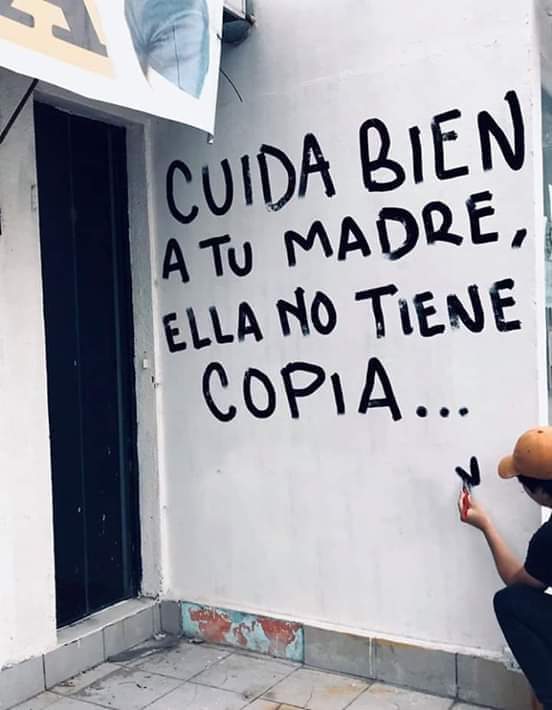 CUIDA BIEN
A TU MADRE,
ELLA NO TIENE
COPIA...